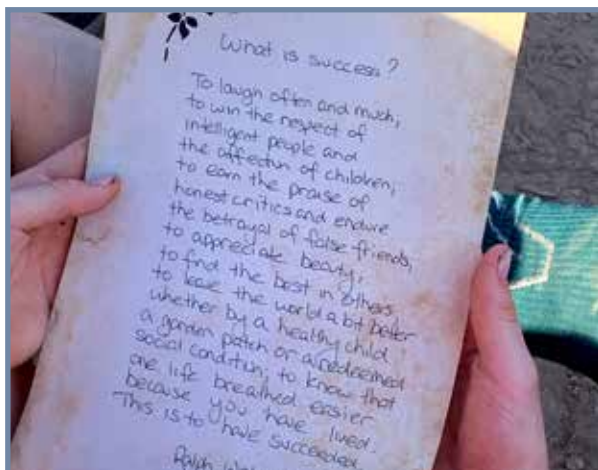 What is success?
To laugh often and much;
to win the respect of
intelligent people and
the affection of children;
to earn the praise of
honest critics and endure
the betrayal of false friends,
to appreciate beauty,
to find the best in others
to leave the world a bit better
whether by a healthy child
a garden patch or a redeemed
social condition; to know that
one life breathed easier
because you have lived.
This is to have succeeded.
Ralph